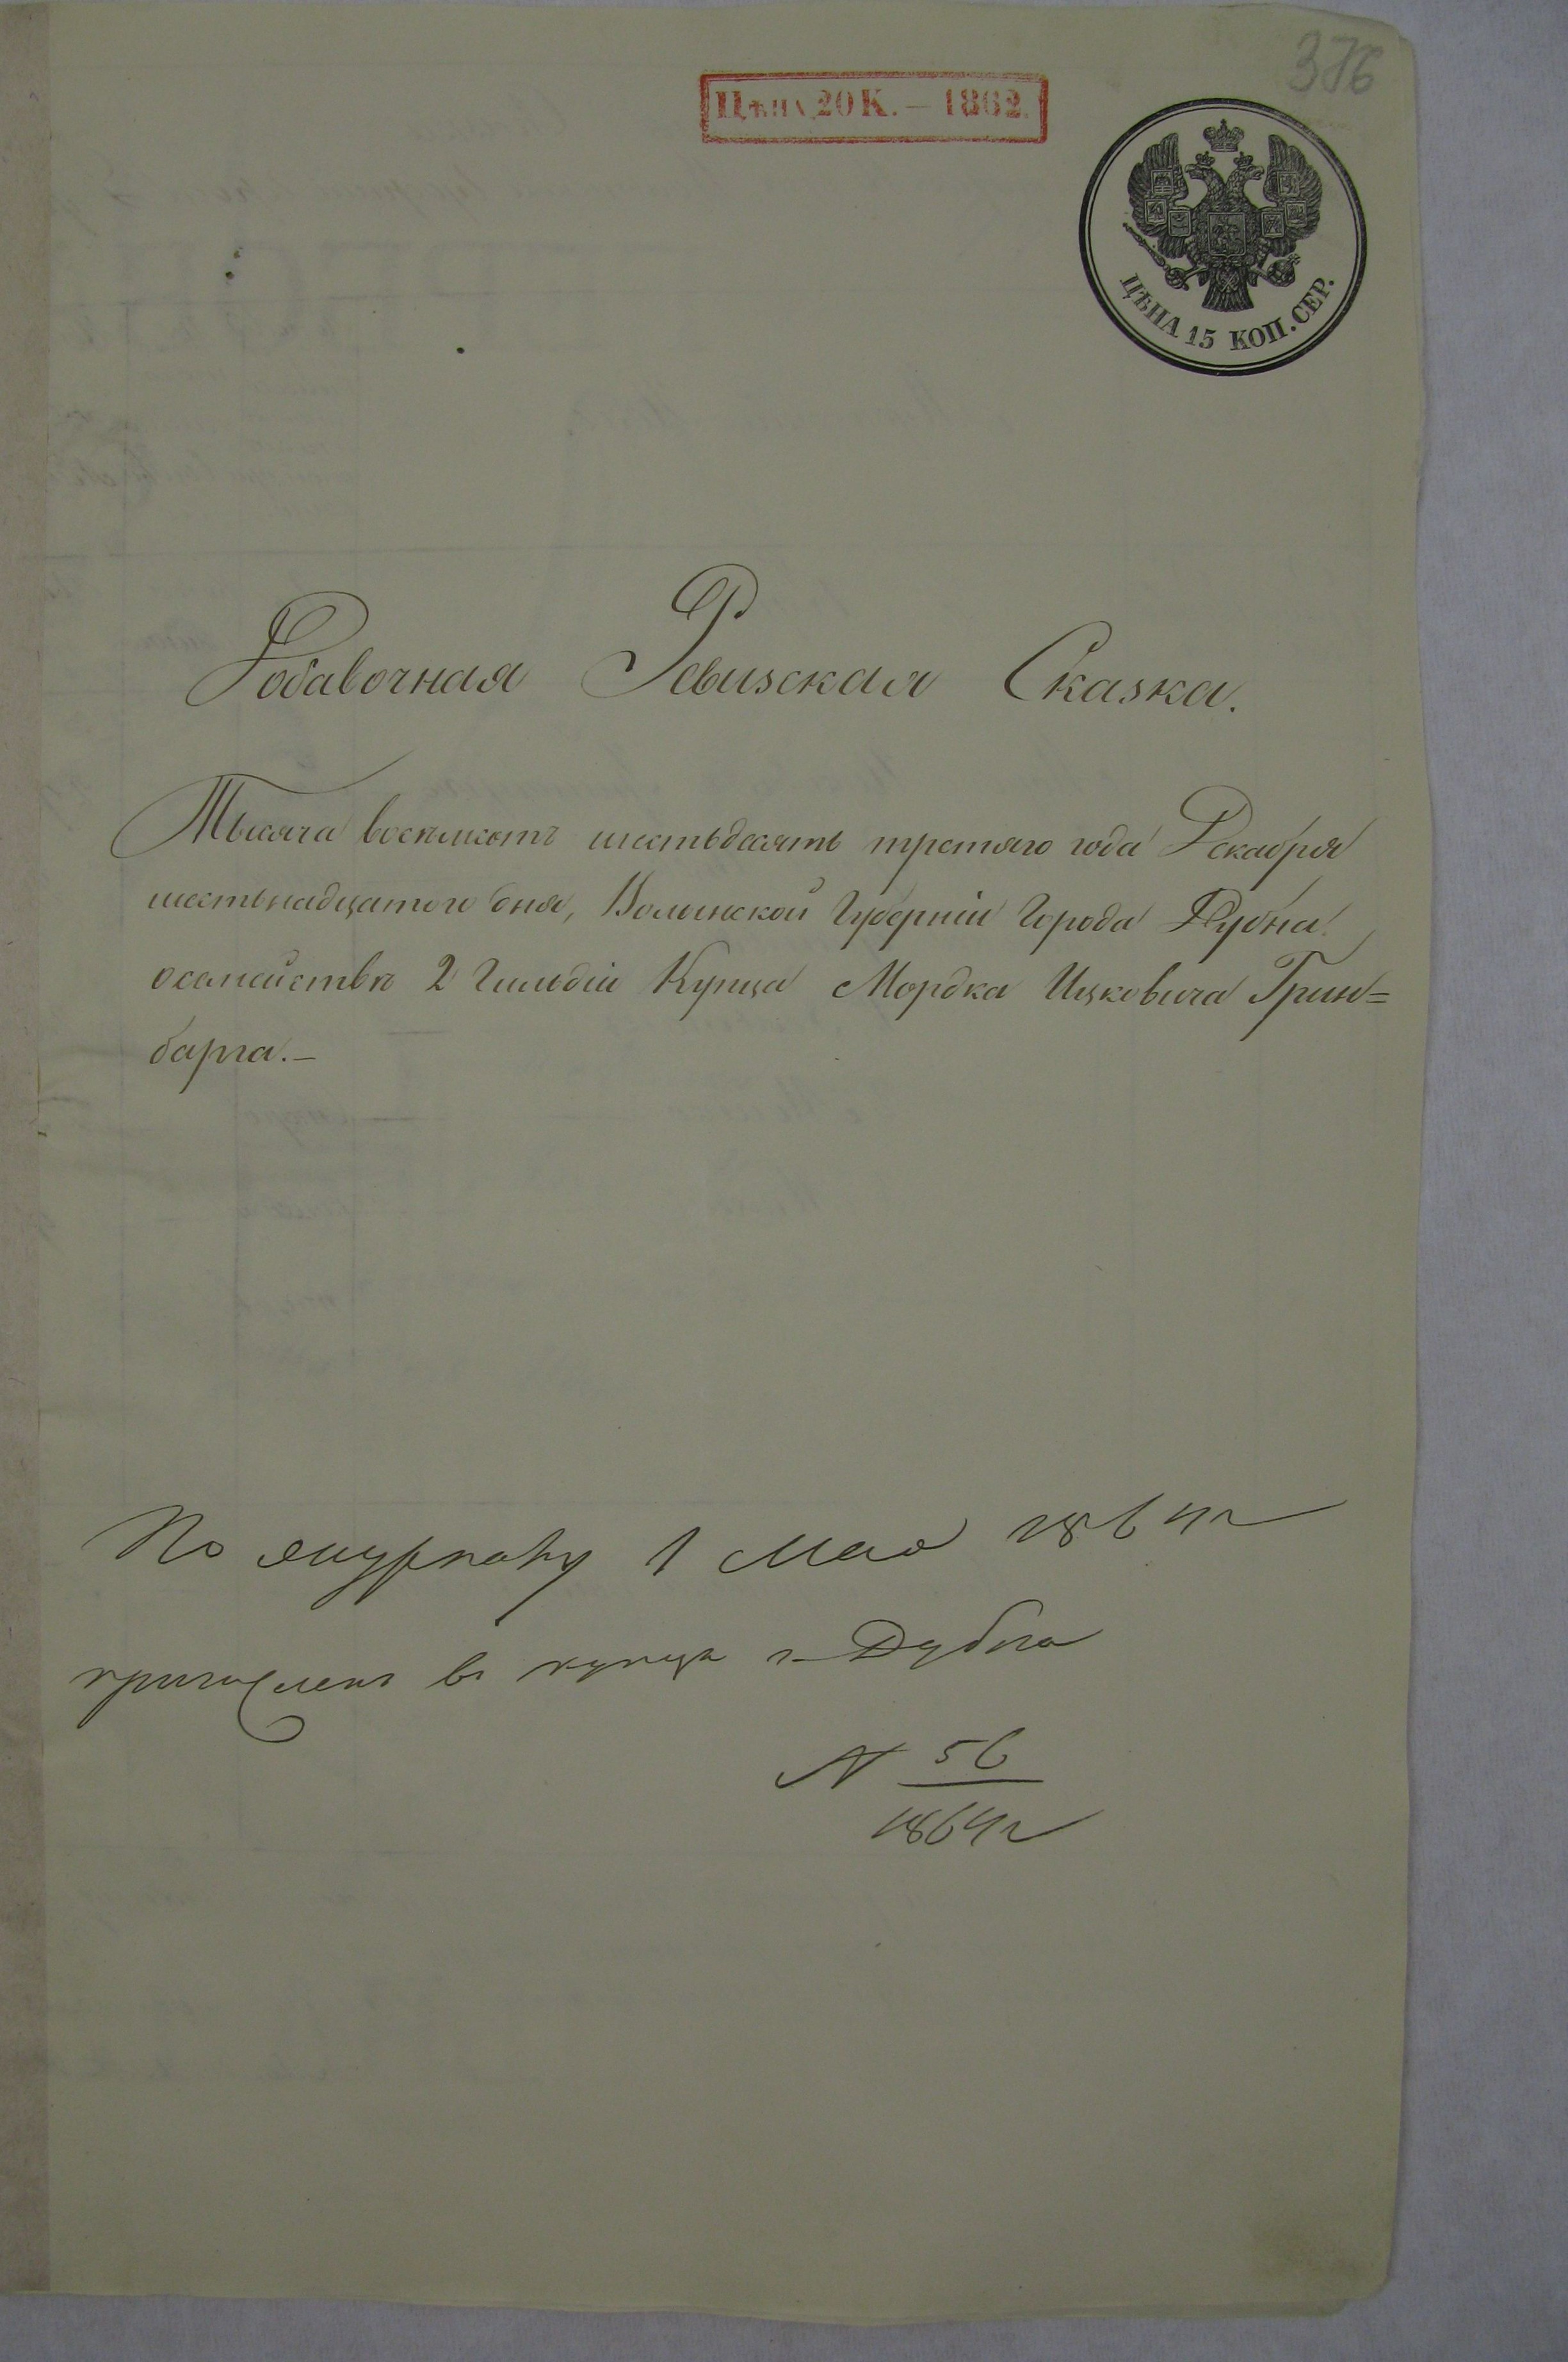 376
Цѣна 20 К. — 1862.
ЦѢНА 15 КОП. СЕР.
Добавочная Ревизская Сказка.
Тысяча восемьсотъ шестьдесятъ третяго года Декабря
шестьнадцатого дня, Волынской Губерніи Города Дубна
осемействѣ 2 Гильдіи Купца Мордка Ицковича Грин=
барга.—
По журналу 1 Мая 1864 г
причисленъ въ купцы г. Дубна
N 56
1864 г